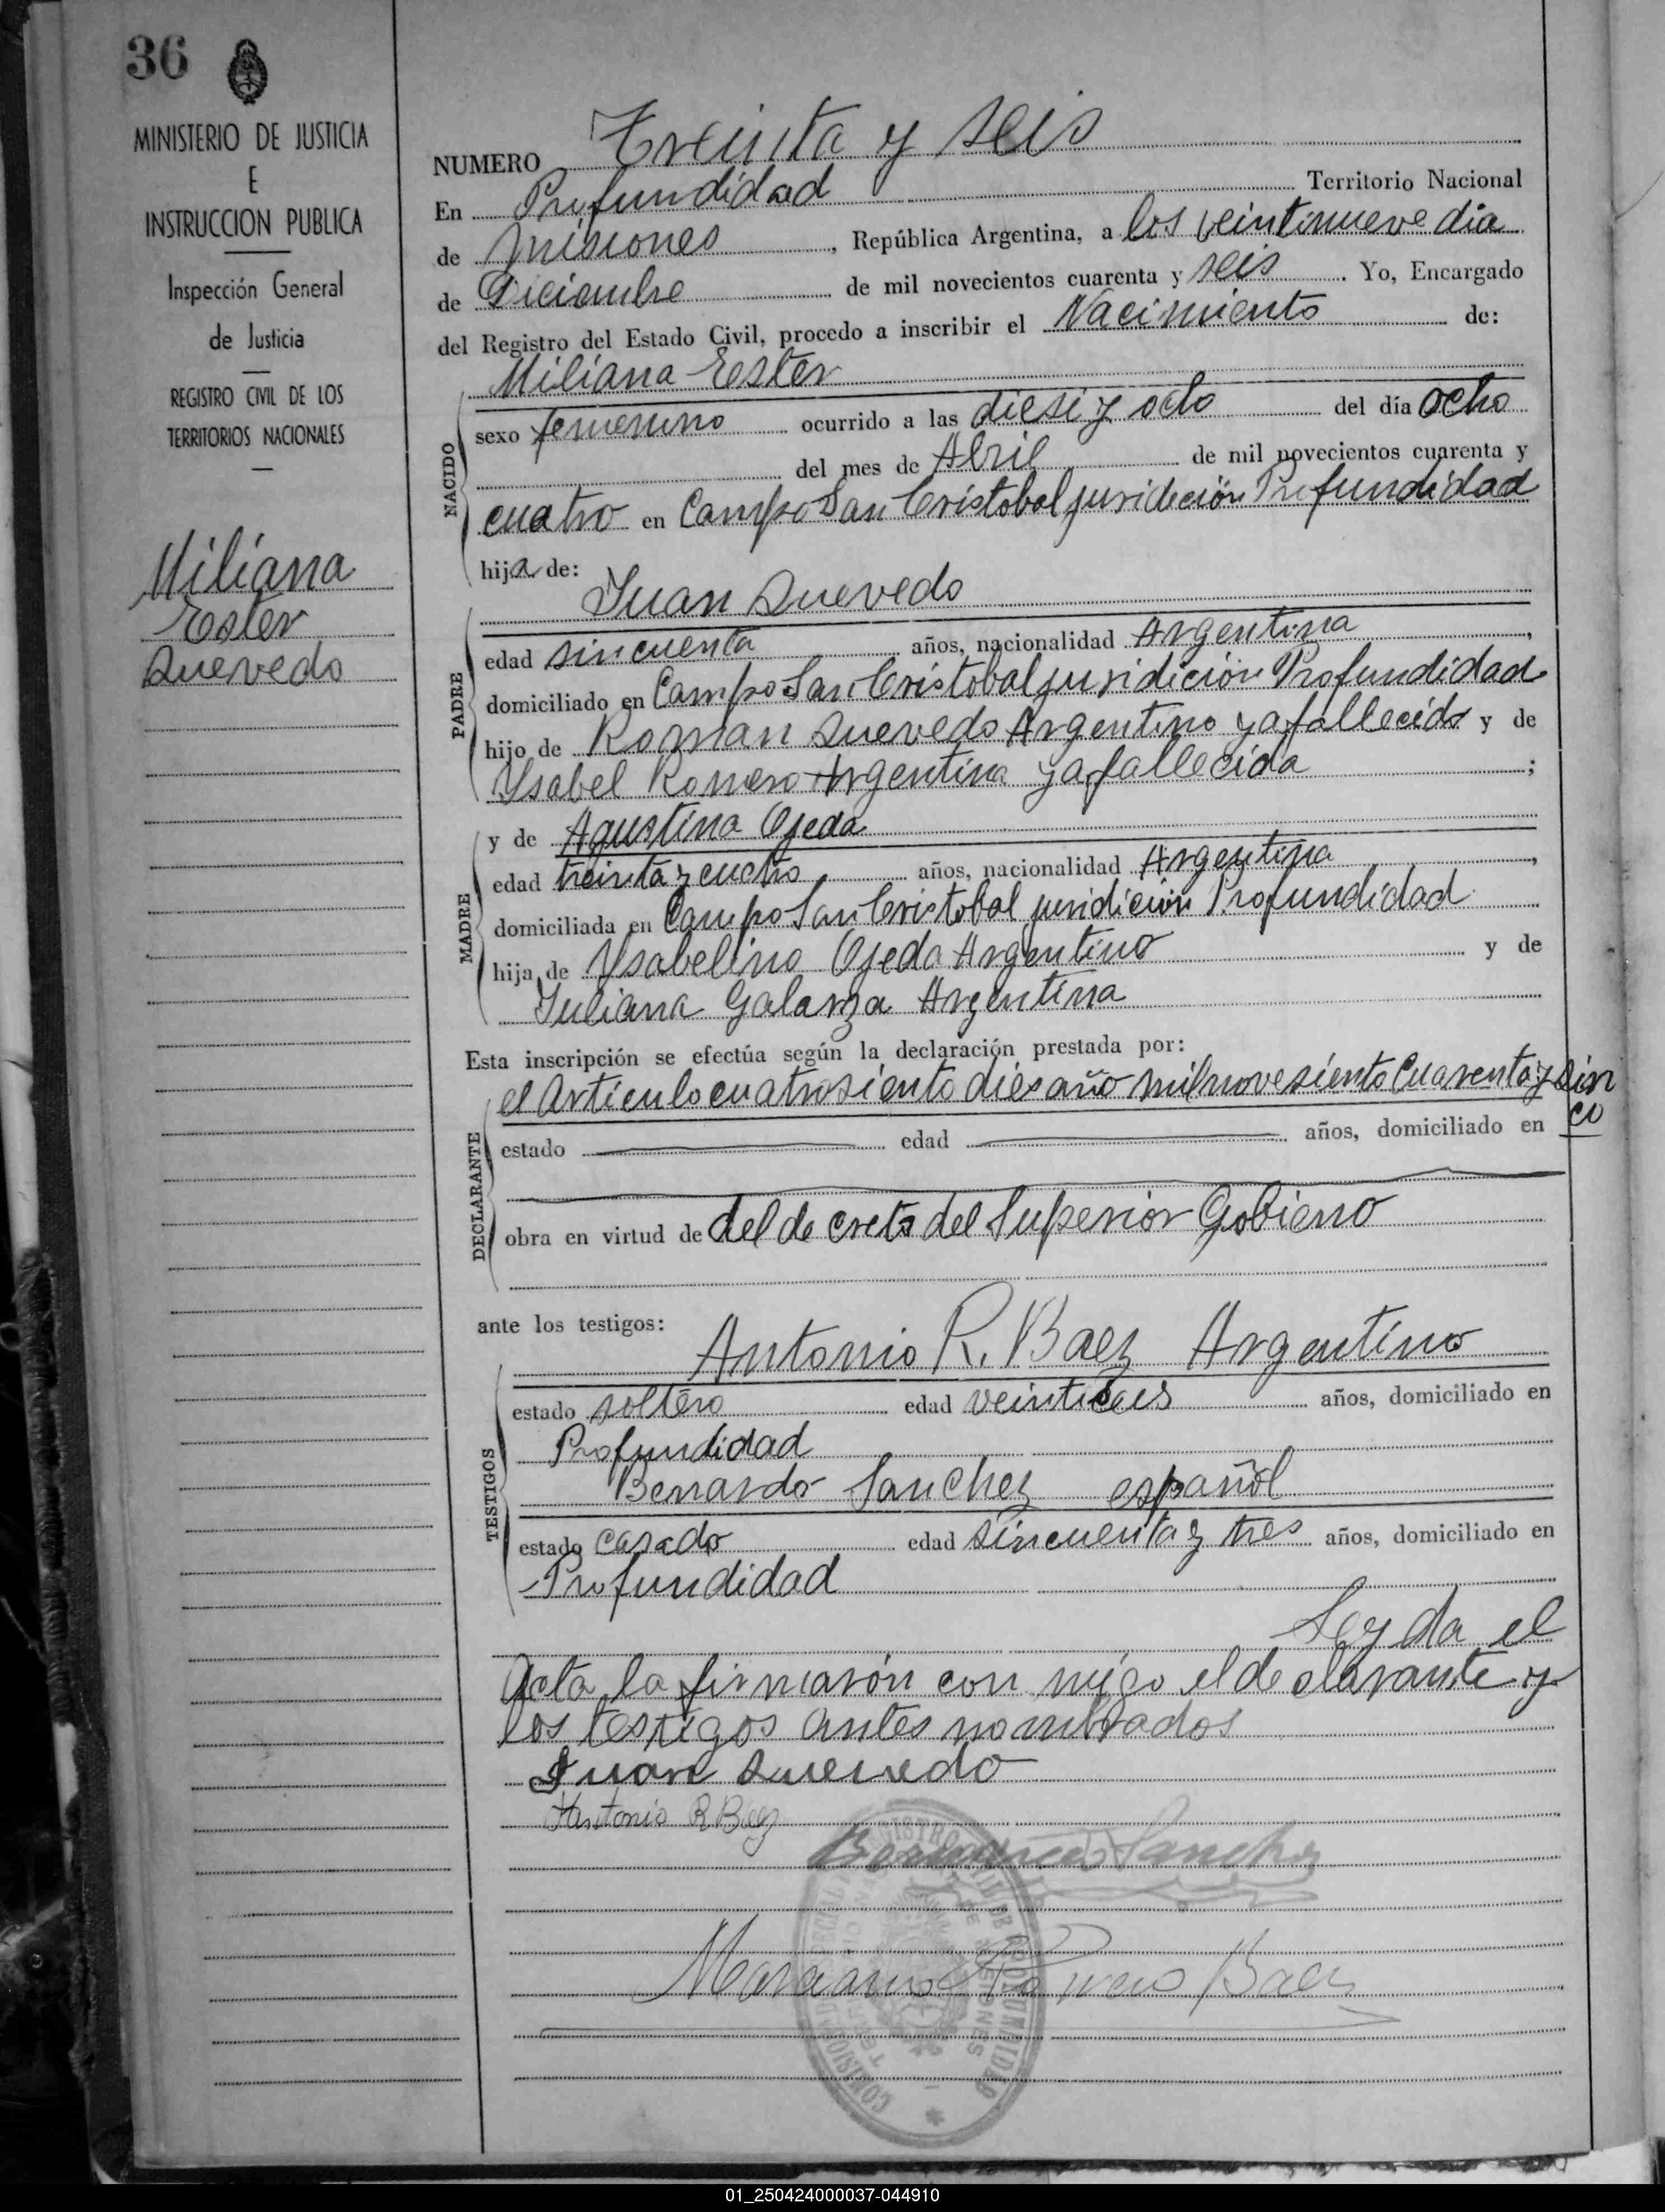 36
MINISTERIO DE JUSTICIA
E
INSTRUCCION PUBLICA
Inspección General
de Justicia
REGISTRO CIVIL DE LOS
TERRITORIOS NACIONALES
Miliana
Ester
Quevedo
NUMERO Treinta y seis
En Profundidad Territorio Nacional
de Misiones, República Argentina, a los veintinueve dia
de Diciembre de mil novecientos cuarenta y seis. Yo, Encargado
del Registro del Estado Civil, procedo a inscribir el Nacimiento de:
Miliana Ester
NACIDO
sexo femenino ocurrido a las diesi y ocho del día ocho
del mes de Abril de mil novecientos cuarenta y
cuatro en Campo San Cristobal juridición Profundidad
hija de:
Juan Quevedo
PADRE
edad sincuenta años, nacionalidad Argentina,
domiciliado en Campo San Cristobal juridición Profundidad
hijo de Roman Quevedo Argentino ya fallecido y de
Ysabel Romero Argentina ya fallecida;
y de Agustina Ojeda
MADRE
edad treinta y cuatro años, nacionalidad Argentina,
domiciliada en Campo San Cristobal juridición Profundidad
hija de Ysabelino Ojeda Argentino y de
Juliana Galarza Argentina
Esta inscripción se efectúa según la declaración prestada por:
el Articulo cuatrosiento dies año mil novesiento Cuarenta y sin
co
DECLARANTE
estado edad años, domiciliado en
obra en virtud de del decreto del Superior Gobierno
ante los testigos:
Antonio R. Baez Argentino
TESTIGOS
estado soltero edad veintiseis años, domiciliado en
Profundidad
Bernardo Sanchez español
estado casado edad sincuenta y tres años, domiciliado en
Profundidad
Leyda el
Acta la firmarón con migo el declarante y
los testigos antes nombrados
Juan Quevedo
Antonio R Baez
Bernardo Sanchez
Baez
01_250424000037-044910